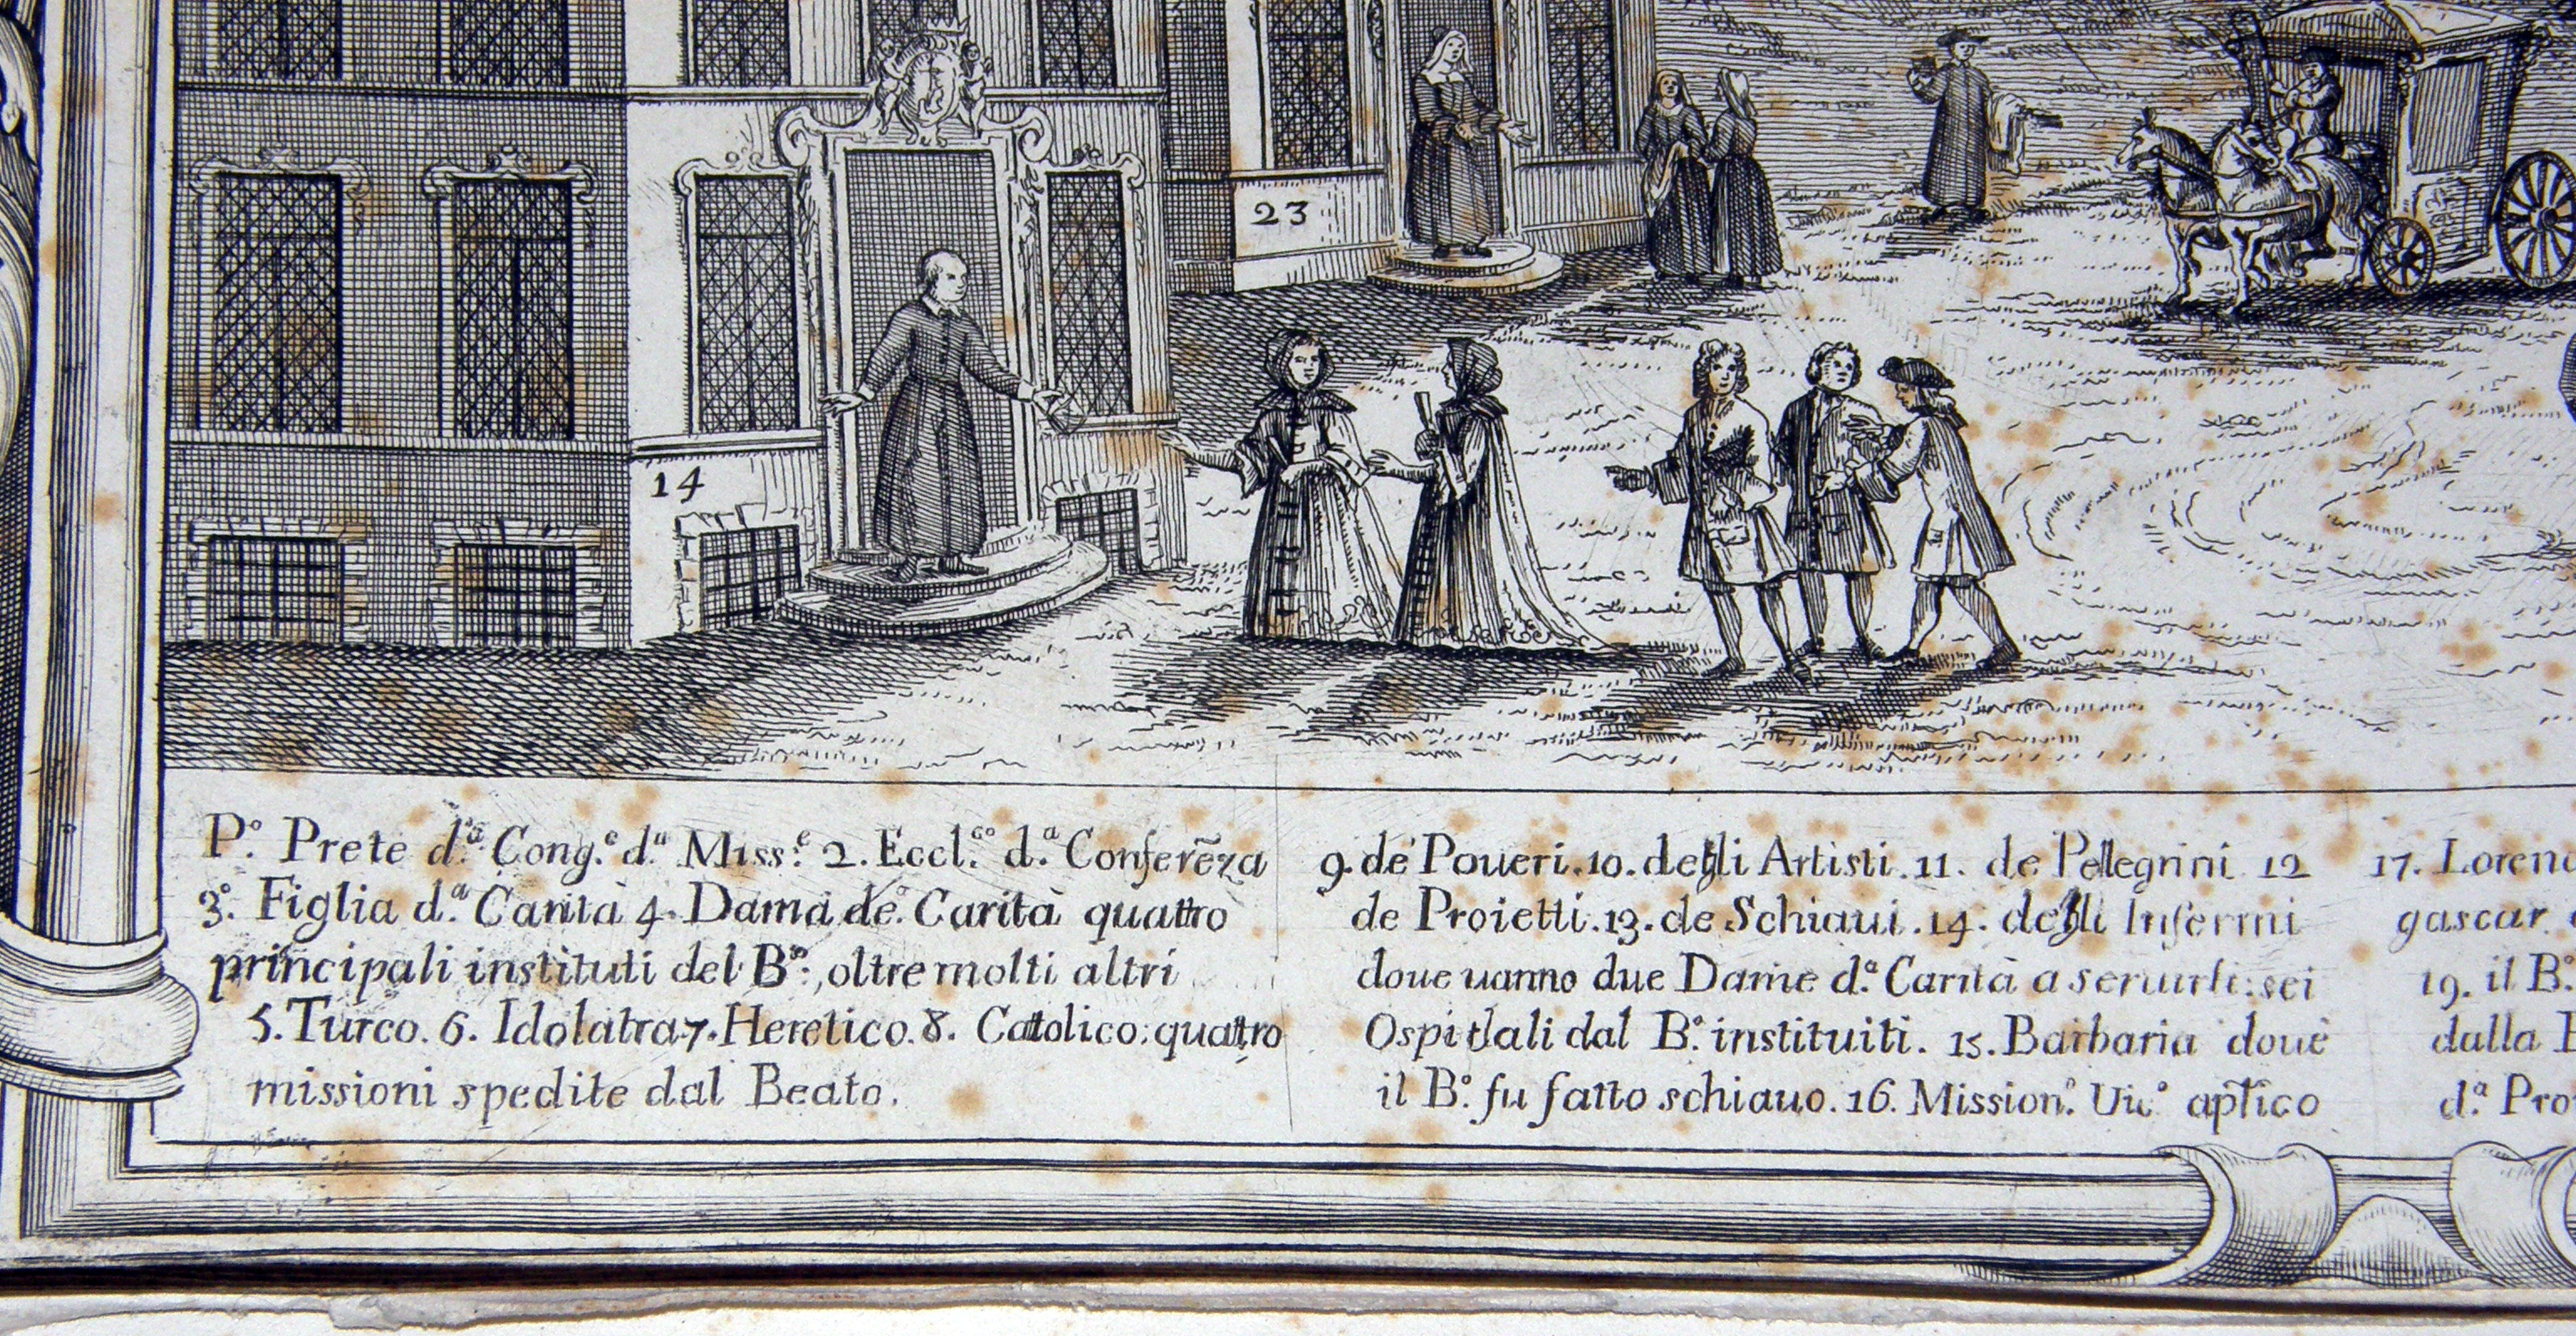 23
14
P.º Prete d.ª Cong.e d.ª Miss.e 2. Eccl.co d.ª Conferẽza
3.º Figlia d.ª Carità 4. Dama de.º Carità quattro
principali instituti del B.º, oltre molti altri
5. Turco. 6. Idolatra 7. Heretico. 8. Catolico; quattro
missioni spedite dal Beato.
9. de Poueri. 10. degli Artisti. 11. de Pellegrini 12
de Proietti. 13. de Schiaui. 14. degli Infermi
doue uanno due Dame d.ª Carità a seruirli: sei
Ospitali dal B.º instituiti. 15. Barbaria doue
il B.º fu fatto schiauo. 16. Mission.º Vic.º ap̃lico
17. Loren
gascar
19. il B.º
dalla
d.ª Pro